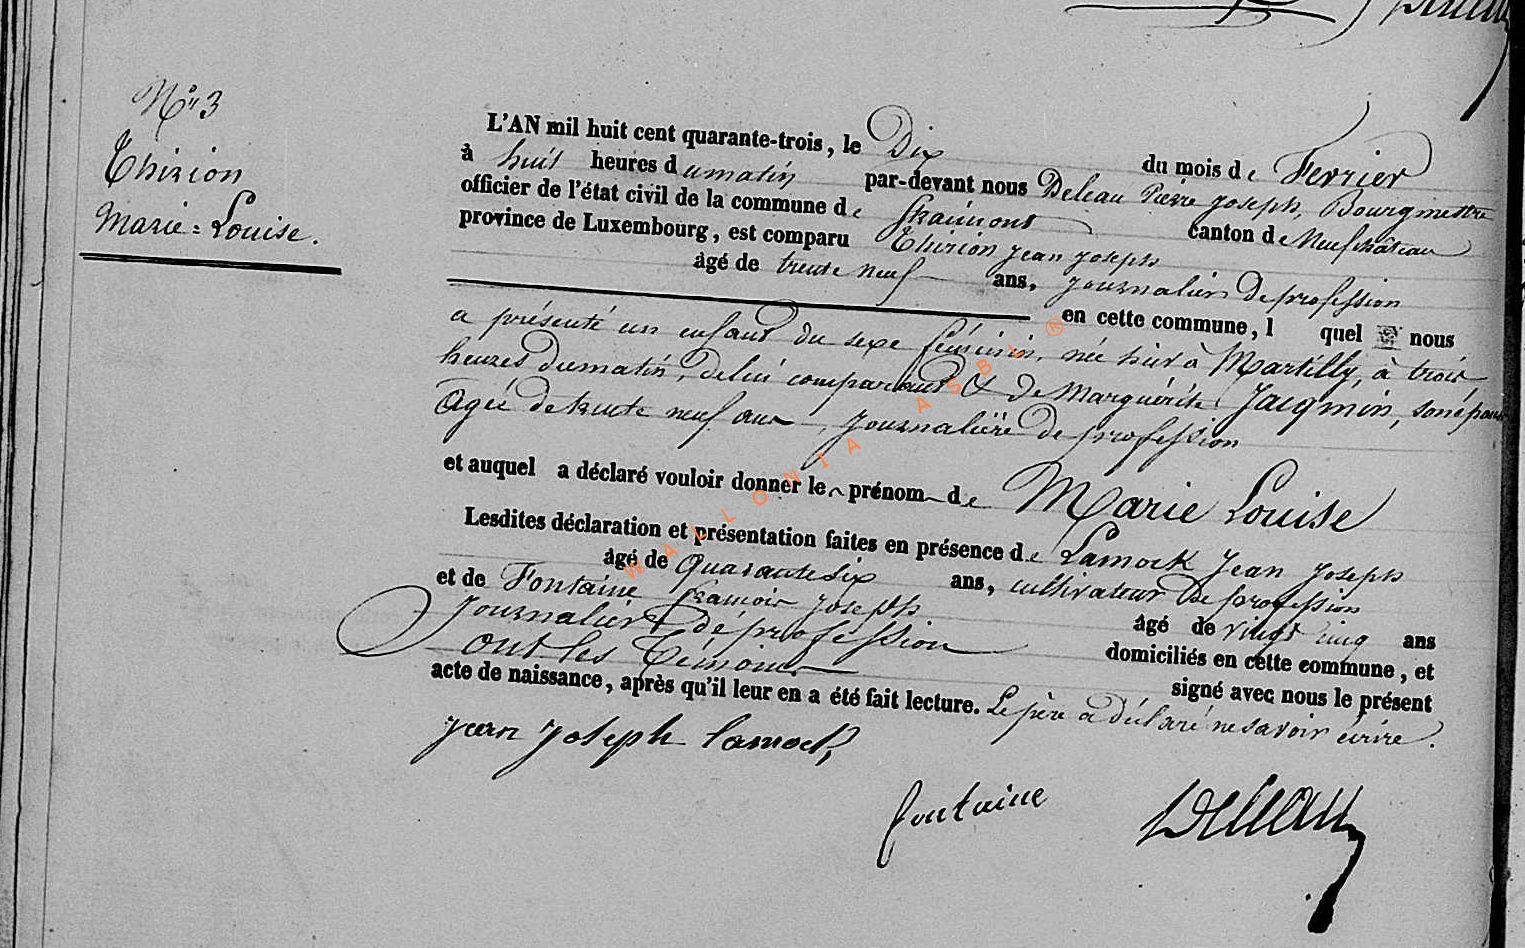 N° 3
Thirion
Marie = Louise.
L'AN mil huit cent quarante-trois, le Dix du mois de Fevrier
à huit heures du matin par-devant nous Deleau Pierre Joseph, Bourgmestre
officier de l'état civil de la commune de Straimont canton de Neufchâteau
province de Luxembourg, est comparu Thirion Jean Joseph
âgé de trente neuf ans, Journalier de profession
en cette commune, l quel nous
a présenté un enfant du sexe féminin, née hier à Martilly, à trois
heures du matin, de lui comparant & de Marguérite Jacqmin, son épouse
agée de trente neuf ans, Journalière de profession
et auquel a déclaré vouloir donner le prénom de Marie Louise
Lesdites déclaration et présentation faites en présence de Lamock Jean Joseph
âgé de Quarante six ans, cultivateur de profession
et de Fontaine François Joseph âgé de vingt cinq ans
Journalier de profession domiciliés en cette commune, et
ont les Témoins signé avec nous le présent
acte de naissance, après qu'il leur en a été fait lecture. Le père a déclaré ne savoir écrire.
Jean Joseph Lamock
fontaine
Deleau
WALLONIA ASBL ®